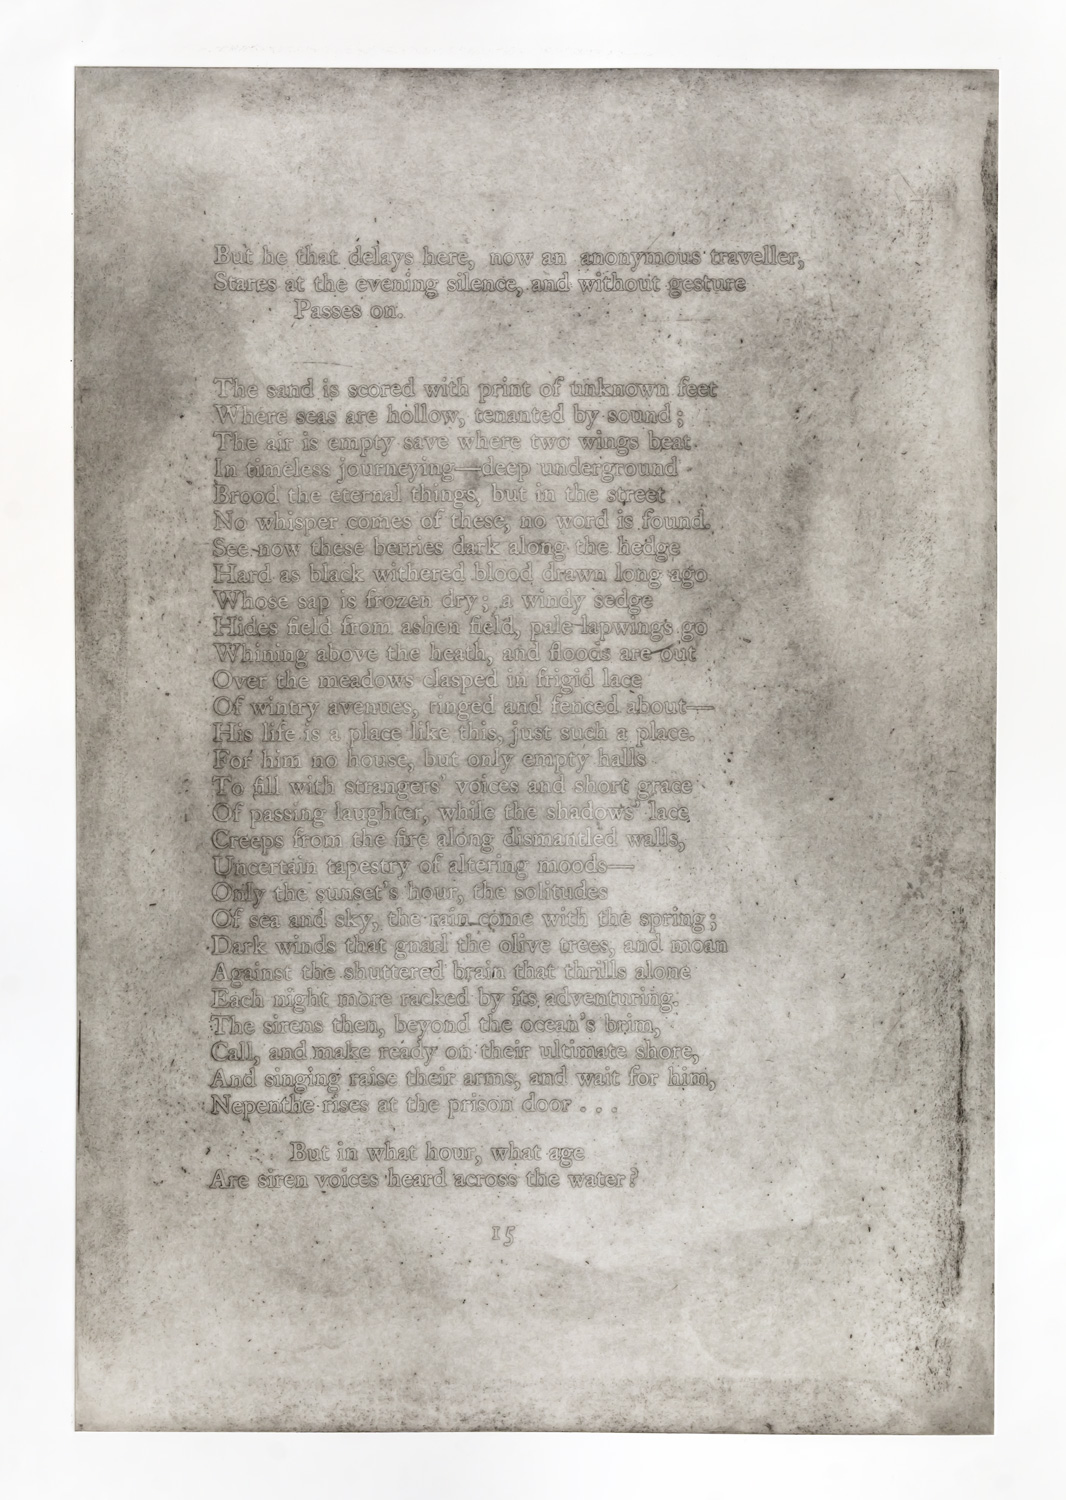 But he that delays here, now an anonymous traveller,
Stares at the evening silence, and without gesture
Passes on.
The sand is scored with print of unknown feet
Where seas are hollow, tenanted by sound;
The air is empty save where two wings beat
In timeless journeying—deep underground
Brood the eternal things, but in the street
No whisper comes of these, no word is found.
See now these berries dark along the hedge
Hard as black withered blood drawn long ago
Whose sap is frozen dry; a windy sedge
Hides field from ashen field, pale lapwings go
Whining above the heath, and floods are out
Over the meadows clasped in frigid lace
Of wintry avenues, ringed and fenced about—
His life is a place like this, just such a place.
For him no house, but only empty halls
To fill with strangers' voices and short grace
Of passing laughter, while the shadows' lace
Creeps from the fire along dismantled walls,
Uncertain tapestry of altering moods—
Only the sunset's hour, the solitudes
Of sea and sky, the rain come with the spring;
Dark winds that gnarl the olive trees, and moan
Against the shuttered brain that thrills alone
Each night more racked by its adventuring.
The sirens then, beyond the ocean's brim,
Call, and make ready on their ultimate shore,
And singing raise their arms, and wait for him,
Nepenthe rises at the prison door . . .
But in what hour, what age
Are siren voices heard across the water?
15